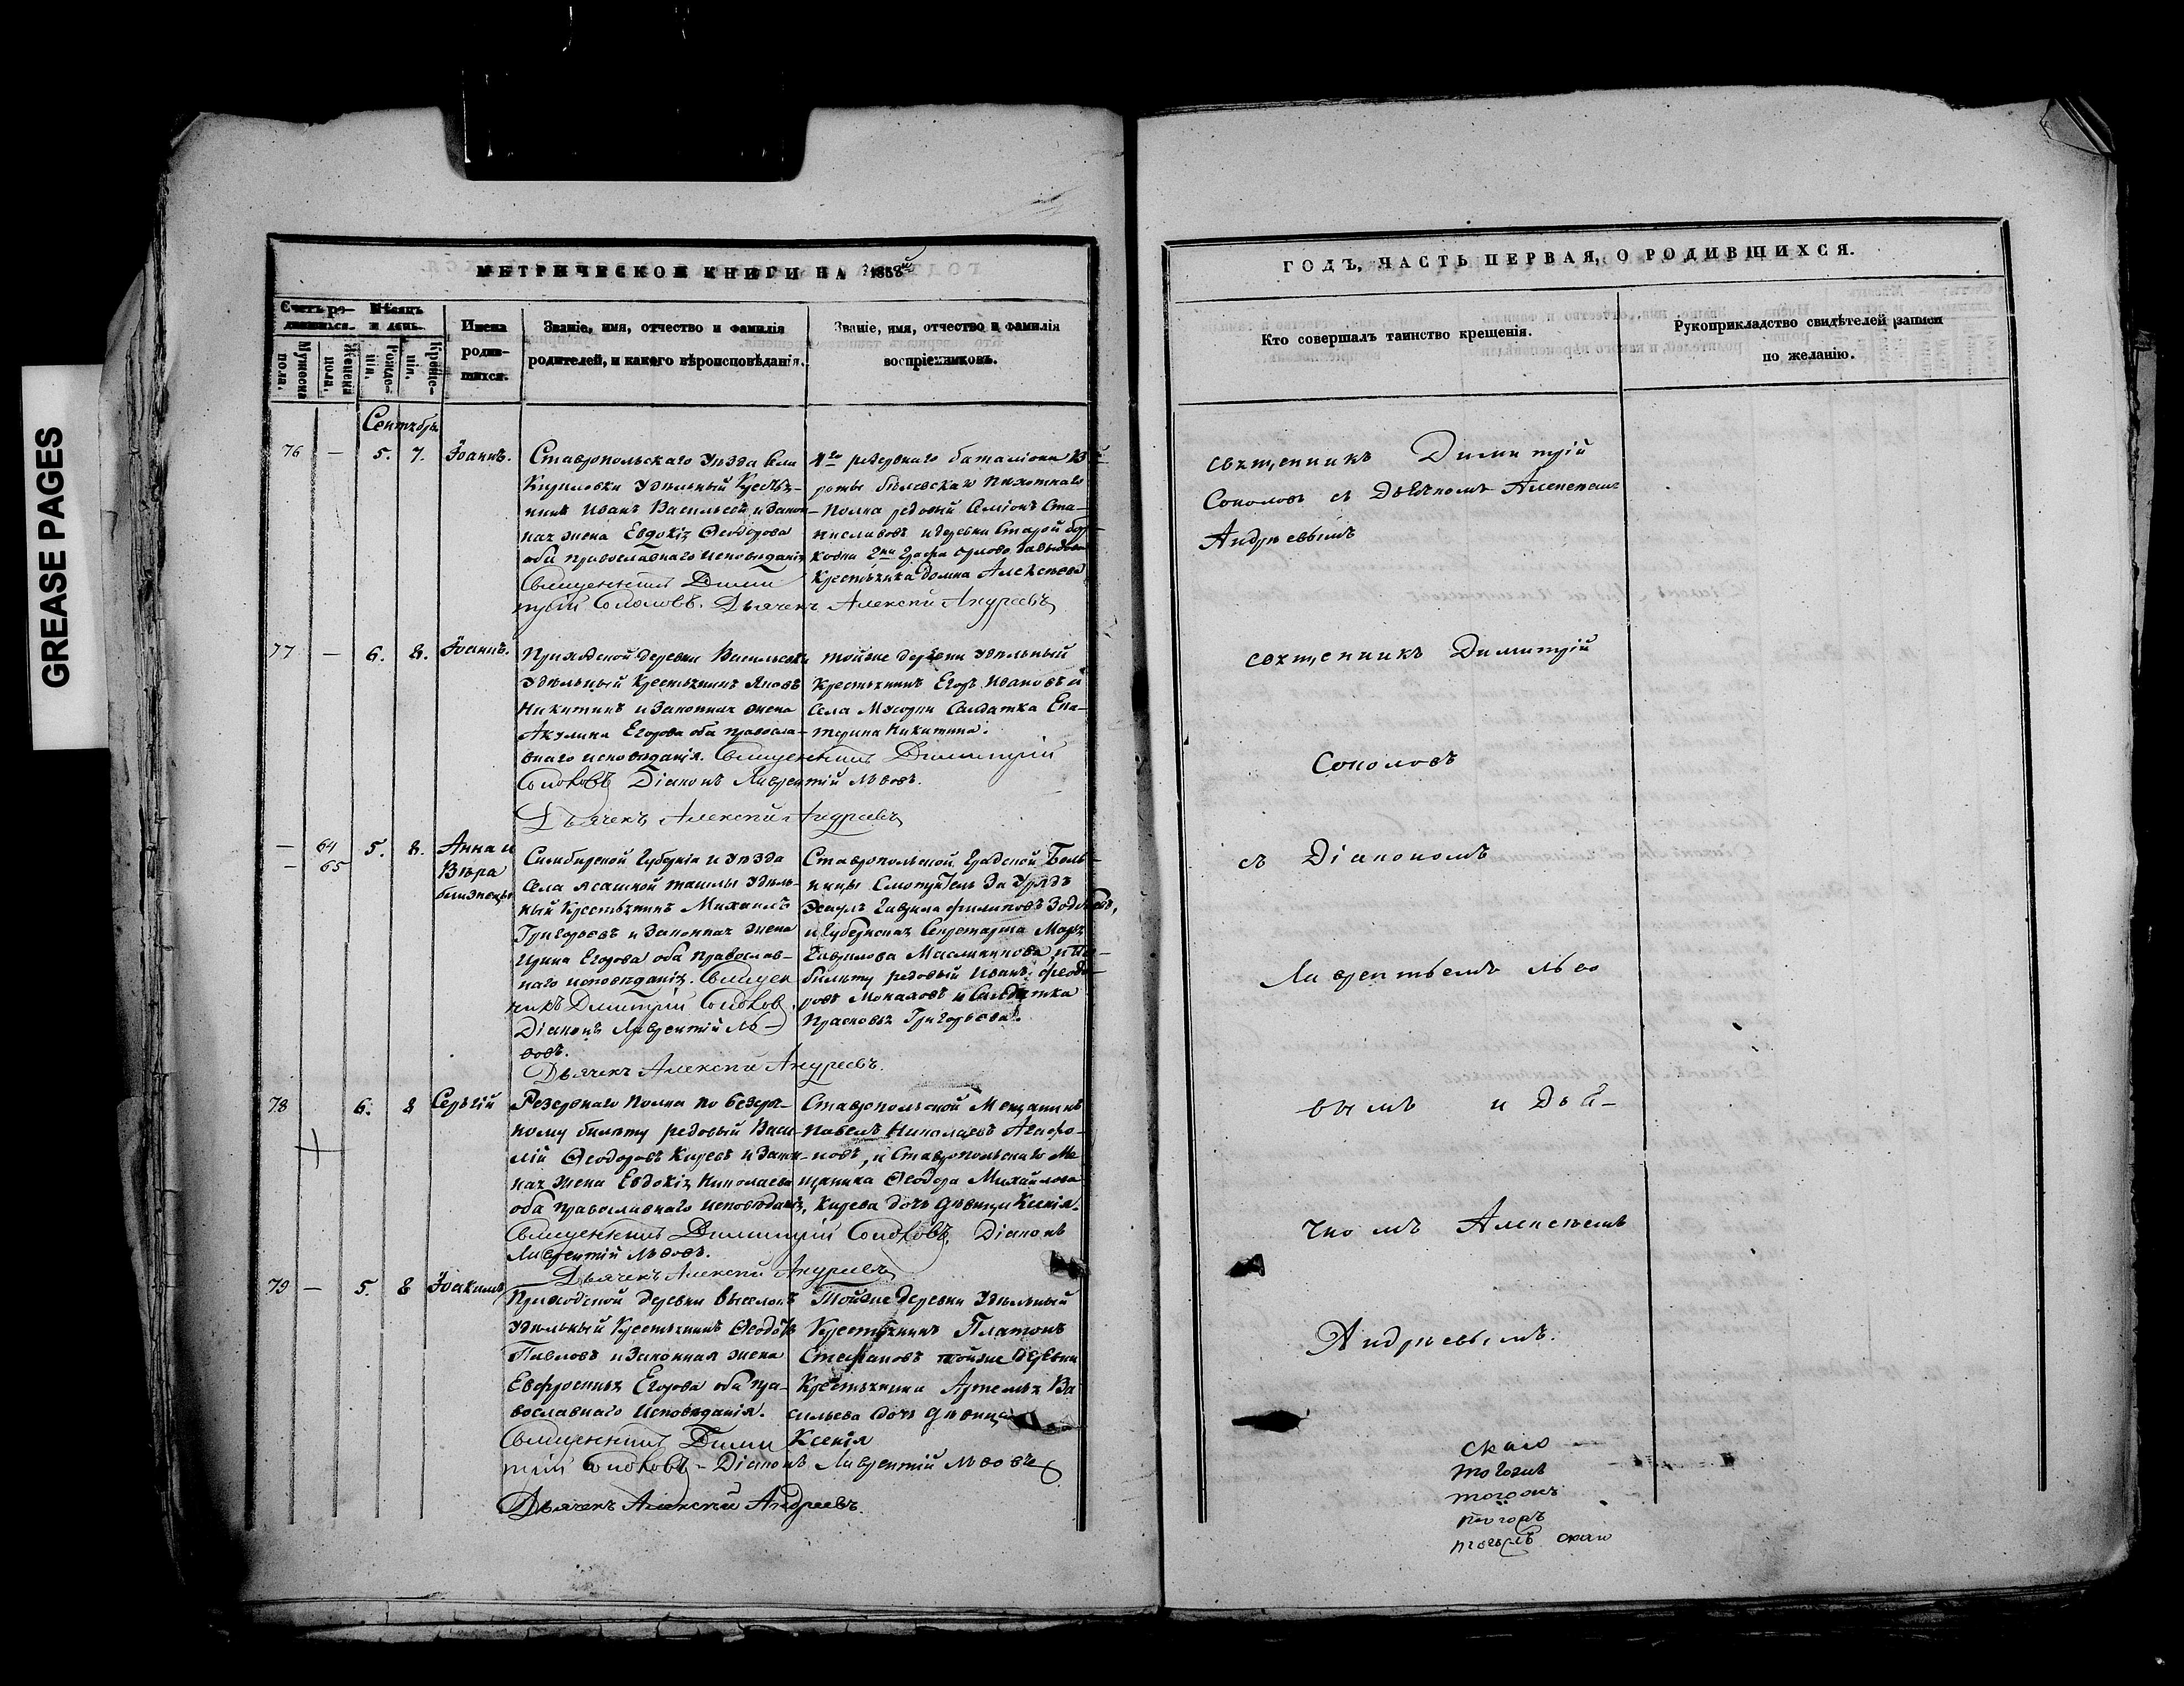 GREASE PAGES
МЕТРИЧЕСКОЙ КНИГИ НА 1858й
Счетъ ро-
дившихся.
Мѣсяцъ
и день.
Мужеска
пола.
Женска
пола.
Рожде-
нія.
Креще-
нія.
Имена
родив-
шихся.
Званіе, имя, отчество и фамилія
родителей, и какого вѣроисповѣданія.
Званіе, имя, отчество и фамилія
воспріемниковъ.
Сентябрь
76 — 5. 7. Іоаннъ.
Ставропольскаго Уѣзда Села
Кириловки Удѣльный Кресть-
нинъ Иванъ Васильевъ и Закон-
ная жена Евдокія Ѳеодорова
оба православнаго исповѣданія
Священникъ Дими
трій Соколовъ. Дьячекъ Алексѣй Андреевъ
1го резервнаго баталіона
роты Бѣлевскаго Пехотнаго
Полка рядовый Семіонъ Ста-
ниславовъ и деревни Старой
Графа Орлова Давыдова
Крестьянка Домна Алексѣева
77 — 6. 8. Іоаннъ.
Приходской деревни Васильевки
Удѣльный Крестьянинъ Яковъ
Никитинъ и Законная жена
Акулина Егорова оба правосла-
внаго исповѣданія. Священникъ Димитрій
Соколовъ Діаконъ Лаврентій Львовъ.
Дьячекъ Алексѣй Андреевъ
тойже деревни Удѣльный
Крестьянинъ Егоръ Ивановъ и
Села Мусорки Салдатка Ека-
терина Никитина.
— 64
— 65
5. 8. Анна и
Вѣра
близнецы
Симбирской Губерніи и Уѣзда
Села Ясашной ташлы Удѣль-
ный Крестьянинъ Михаилъ
Григорьевъ и Законная жена
Ирина Егорова оба православ-
наго исповѣданія. Священ
никъ Димитрій Соколов
Діаконъ Лаврентій Ль-
вовъ.
Дьячекъ Алексѣй Андреевъ.
Ставропольской Градской Боль-
ницы Смотритель За Урядъ
Эсаулъ Гаврила Филиповъ
и Губернская Секретарша Марья
Гаврилова Масленникова, и По
билету рядовый Иванъ Ѳеодо-
ровъ Мокаловъ и Салдатка
Прасковья Григорьева.
78 6. 8 Сергій
Резервнаго Полка по безсроч-
ному билету рядовый Васи-
лій Ѳеодоровъ Киревъ и Закон-
ная жена Евдокія Николаева
оба православнаго исповѣданія,
Священникъ Димитрій Соколовъ, Діаконъ
Лаврентій Львовъ.
Дьячекъ Алексѣй Андреевъ
Ставропольской Мещанинъ
Павелъ Николаевъ Агафо-
новъ, и Ставропольскаго Ме
щанина Ѳеодора Михайлова
Кирева дочь дѣвица Ксенія.
79 — 5. 8 Іоакимъ
Приходской деревни Выселокъ
Удѣльный Крестьянинъ Ѳеодоръ
Павловъ и Законная жена
Евфросинья Егорова оба пра-
вославнаго исповѣданія.
Священникъ Дими
трій Соколовъ — Діаконъ Лаврентій Львовъ
Дьячекъ Алексѣй Андреевъ.
Тойже деревни Удѣльный
Крестьянинъ Платонъ
Степановъ тойже деревни
Крестьянина Артемья Ва
сильева дочь дѣвица
Ксенія
ГОДЪ, ЧАСТЬ ПЕРВАЯ, О РОДИВШИХСЯ.
Кто совершалъ таинство крещенія.
Рукоприкладство свидѣтелей записи
по желанію.
священникъ Димитрій
Соколовъ съ Дьячкомъ Алексѣемъ
Андреевымъ
священникъ Димитрій
Соколовъ
съ Діакономъ
Лаврентьемъ Льво
вымъ и Дья-
чкомъ Алексѣемъ
Андреевымъ.
скаго